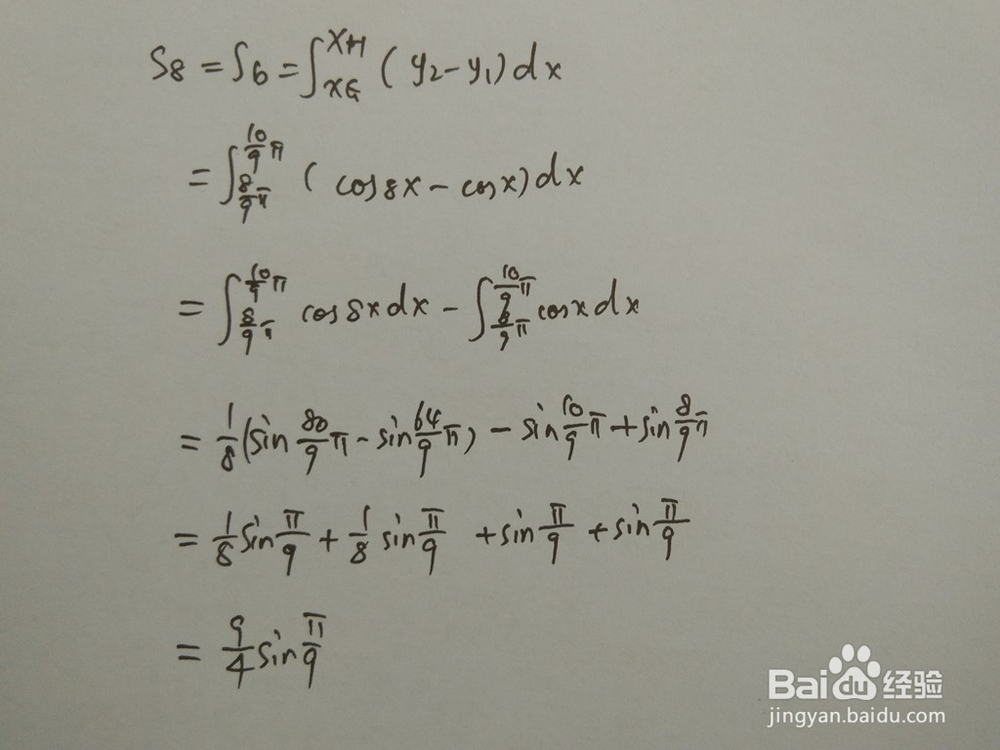 S8 = S6 = ∫_{XG}^{XH} (y2 - y1) dx
= ∫_{8/9 π}^{10/9 π} (cos8x - cosx) dx
= ∫_{8/9 π}^{10/9 π} cos8x dx - ∫_{8/9 π}^{10/9 π} cosx dx
= 1/8 (sin 80/9 π - sin 64/9 π) - sin 10/9 π + sin 8/9 π
= 1/8 sin π/9 + 1/8 sin π/9 + sin π/9 + sin π/9
= 9/4 sin π/9
Baidu经验
jingyan.baidu.com